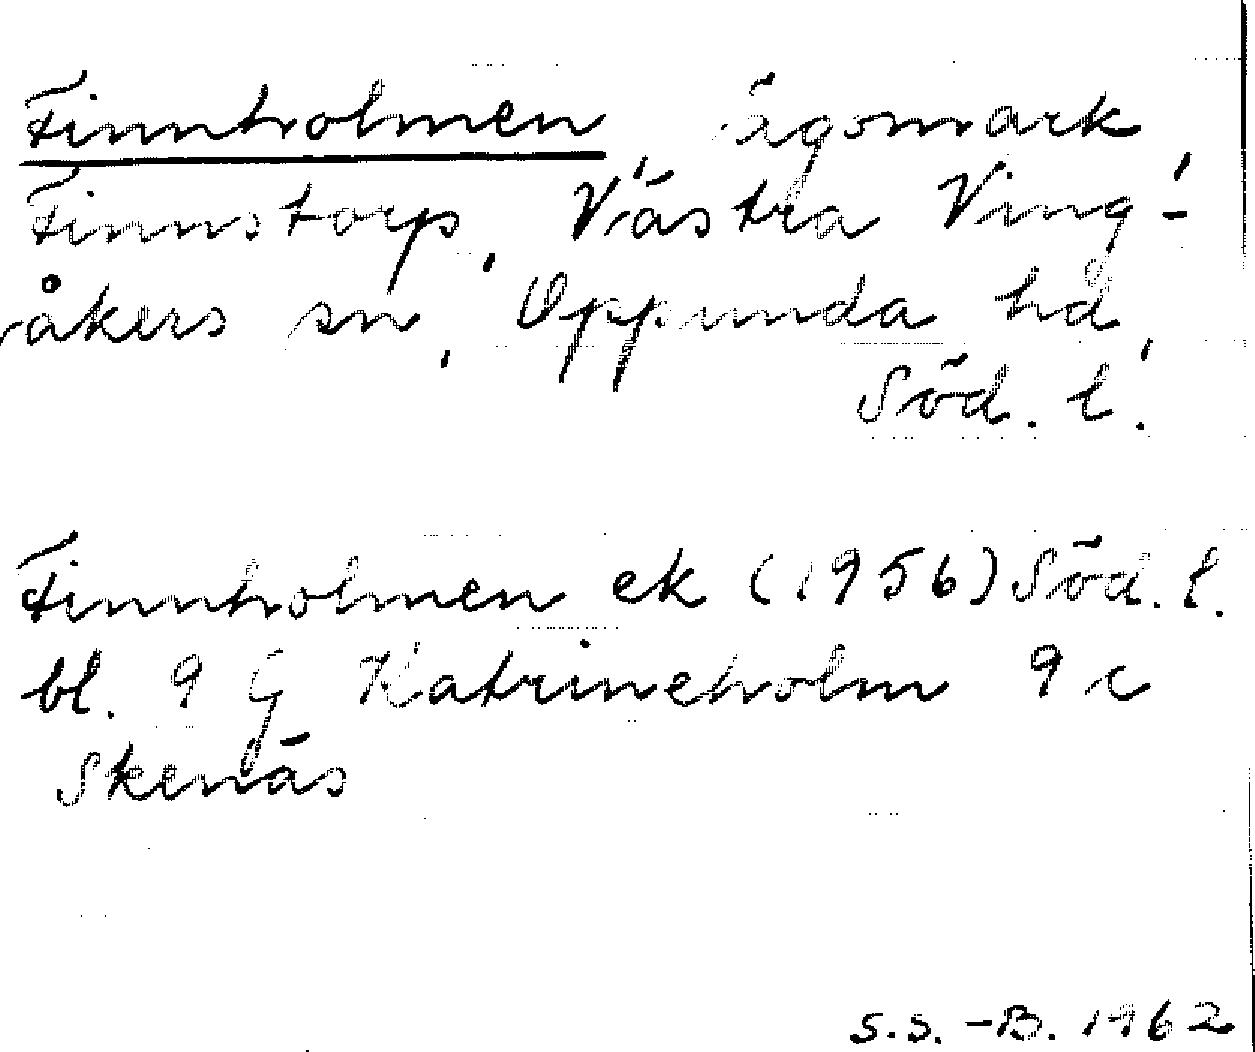 Finnholmen, ägomark,
Finnstorp, Västra Ving-
åkers sn, Oppunda hd,
Söd. l.
Finnholmen ek (1956) Söd. l.
bl. 9 G Katrineholm 9 c
Skenäs
S.S.-B. 1962